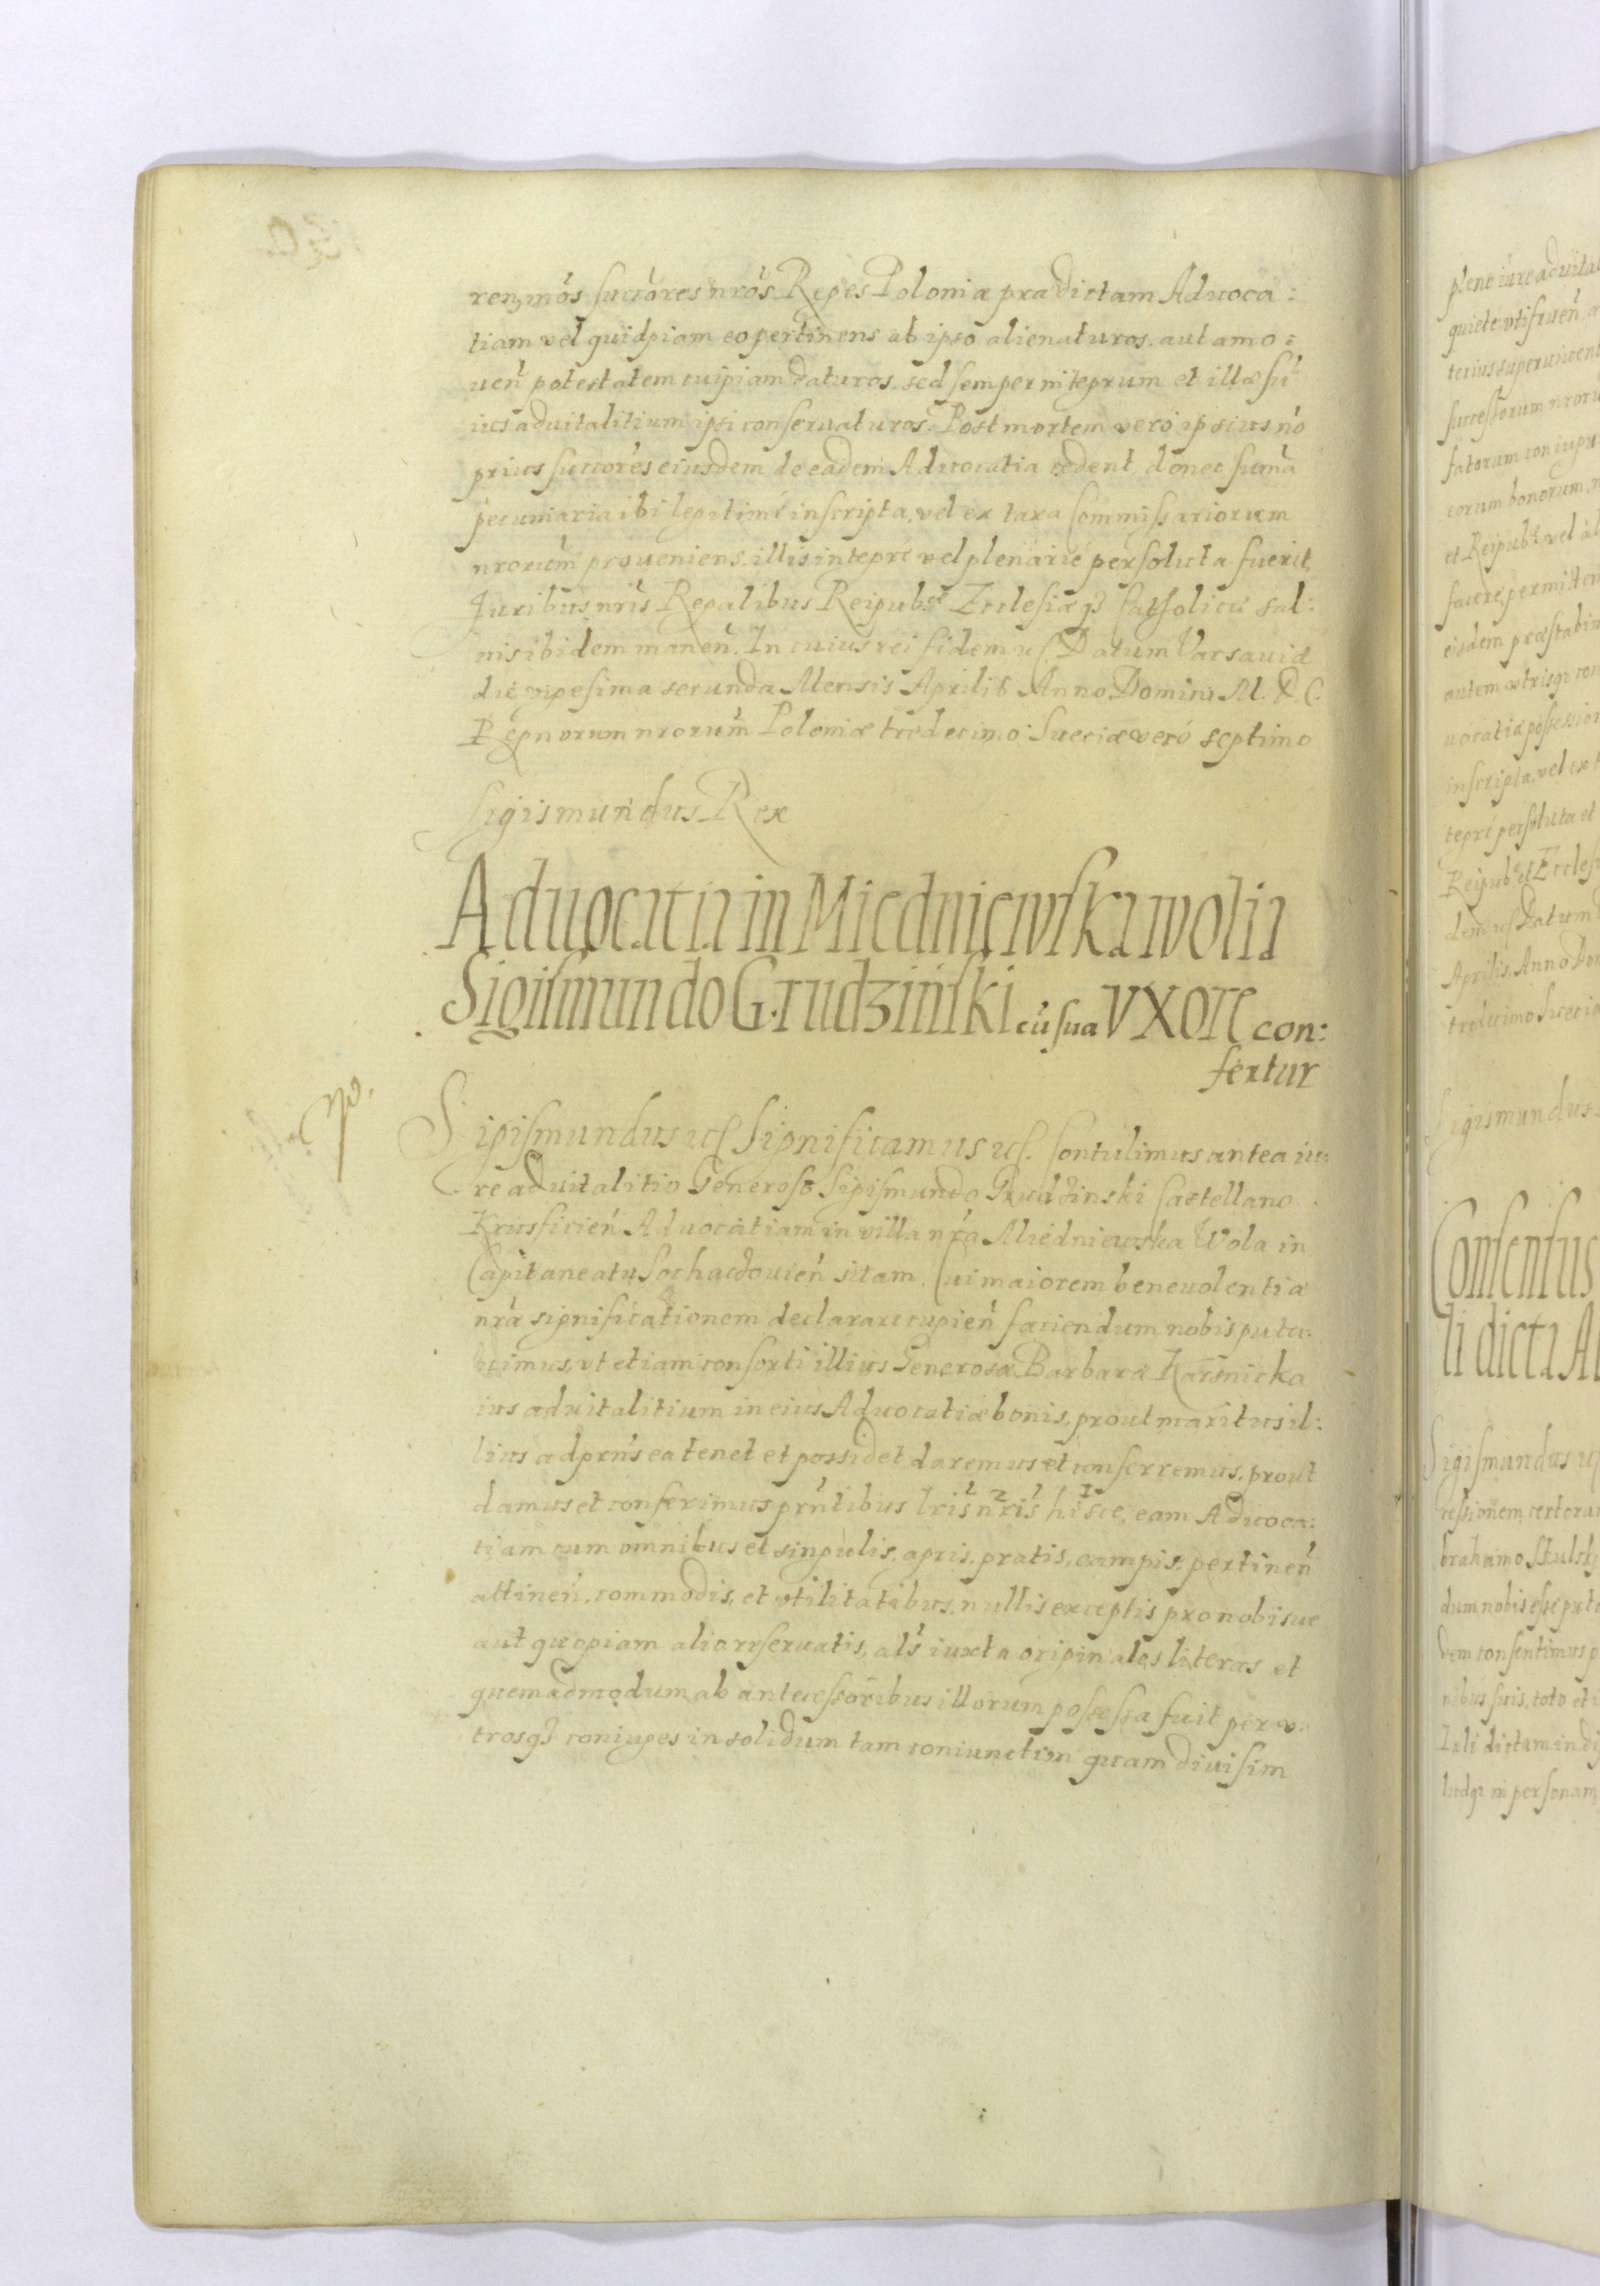 renimós succóres nrós Reges Poloniæ prædictam Aduoca:
tiam vel quidpiam eo pertinens ab ipso alienaturos. aut amo:
uen̄ potestatem cuipiam daturos. sed semper integrum et illæsū
ius aduitalitium ipsi conseruaturos. Post mortem vero ipsius nō
prius succores eiusdem de eadem Aduocatia cedent, donec sum̄a
pecuniaria ibi legitimé inscripta, vel ex taxa Commissariorum
nrorum proueniens, illis integré vel plenarié persoluta fuerit,
Juribus nris̄ Regalibus Reipubcæ Ecclesiæq3 Catholicæ sal:
uis ibidem manen̄. In cuius rei fidem etc. Datum Varsauiæ
die vigesima secunda Mensis Aprilis Anno Domini M. D. C.
Regnorum nrorum̄ Poloniæ tredecimo Sueciæ veró septimo
Sigismundus Rex
Aduocatia in Miedniewska wolia
Sigismundo Grudzinski cū sua VXORE con:
fertur
Sigismundus etc. Significamus etc. Contulimus antea iu:
re aduitalitio Generoso Sigismundo Grudzinski Castellano
Krusficien̄ Aduocatiam in villa nrā Miedniewska Wola in
Capitaneatu Sochaczouien̄ sitam. Cui maiorem beneuolentiæ
nræ significationem declarare cupien̄ faciendum nobis puta:
uimus, vt etiam consorti illius Generosæ Barbaræ Karśnicka
ius aduitalitium in eius Aduocatiæ bonis, prout maritus il:
lius ad prn̄s ea tenet et possidet daremus et conferremus, prout
damus et conferimus prn̄tibus lris̄ nris̄ hisce, eam Aduoca:
tiam cum omnibus et singulis, agris, pratis, campis, pertinen̄
attinen̄, commodis, et vtilitatibus, nullis exceptis pro nobisue
aut quopiam alio reseruatis, als̄ iuxta originales literas et
quemadmodum ab antecessoribus illorum possessa fuit per v:
trosq3 coniuges in solidum tam coniunctim quam diuisim
plene iure aduital
quieté vtifruen̄
terius superuiuent
successorum nroru
fatorum coniugu
eorum bonorum
et Reipubcæ vel al
facere, permitten
eisdem præstabim
autem vtrisq3 con
uocatiæ possession
inscripta, vel ex t
tegré persoluta et
Reipub. et Ecclesi
dem etc. Datum
Aprilis, Anno Do
tredecimo Sueciæ
Sigismundus
Consensus
li dicta A
Sigismundus etc
cessionem certoru
brahamo Skulsk
dum nobis esse put
dem consentimus p
nibus suis, toto et i
li dictam in di
in personam